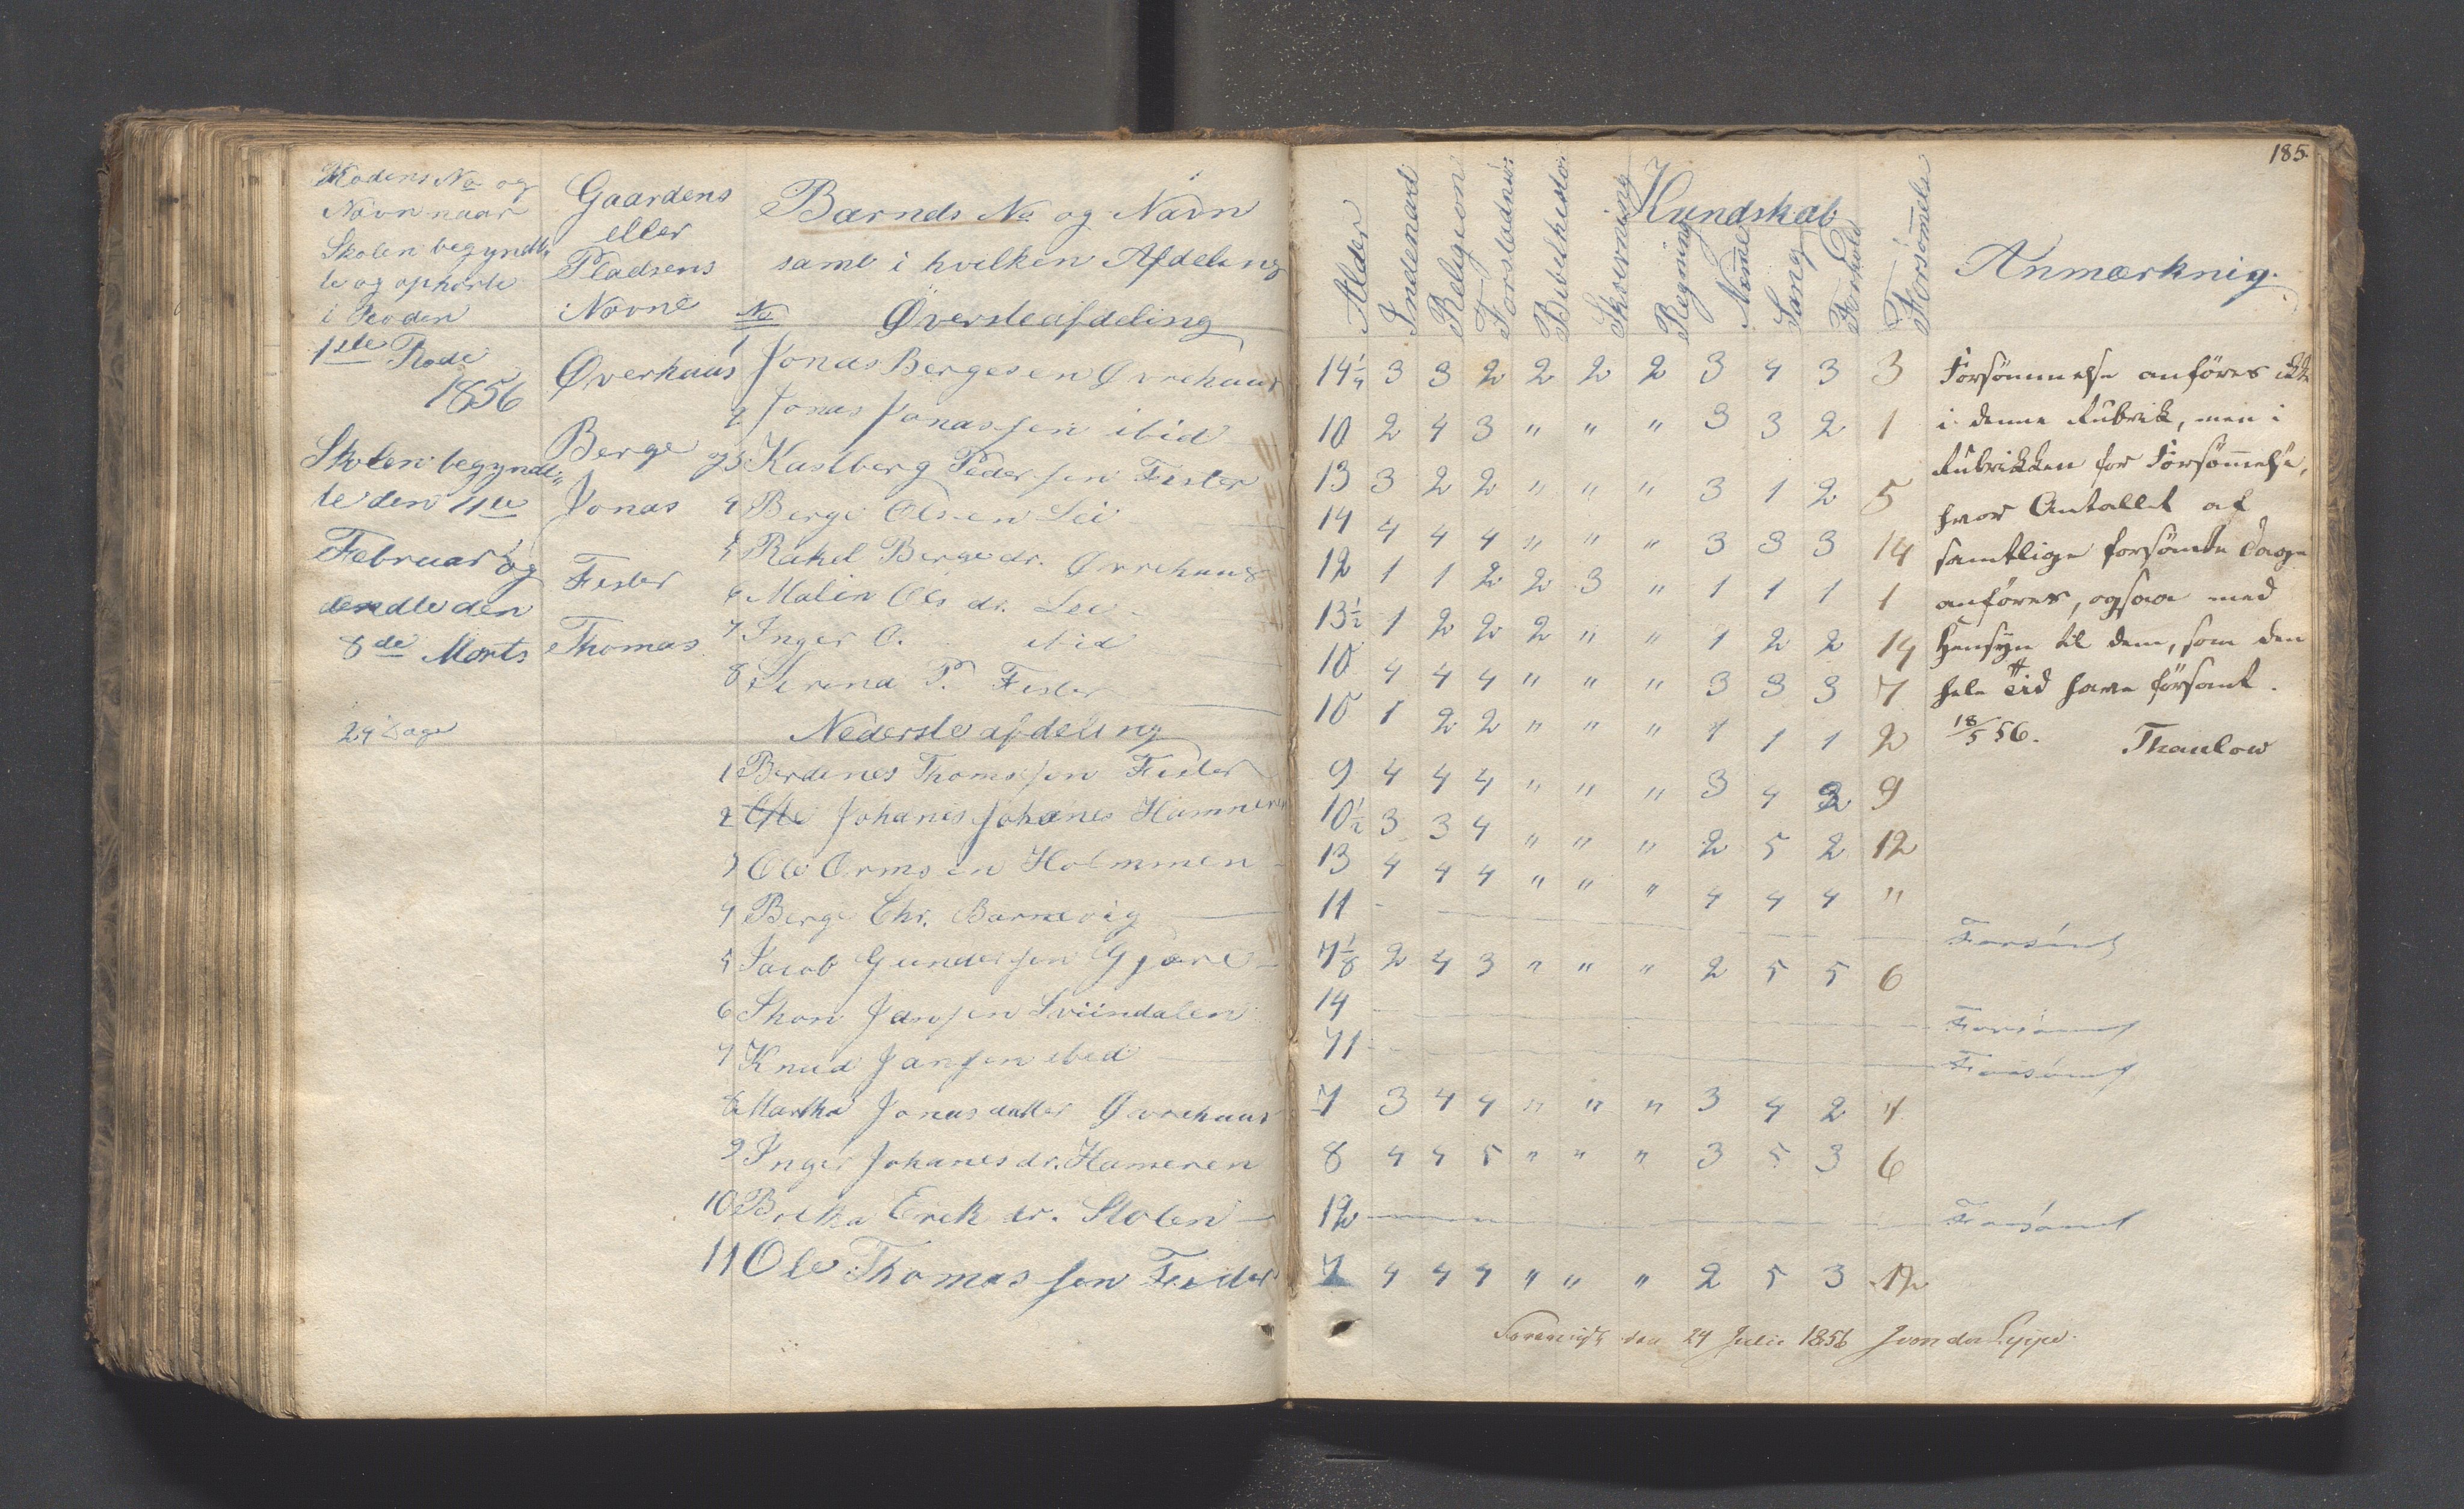 185
Rodens No og
Navn naar
Skolen begyndte
te og ophørte
i Roden
Gaardens
eller
Pladsens
Navne
Barnds No og Navn
samt i hvilken Afdeling
No Øversteafdeling
Kundskab
Alder Indenad Religion Forstadnis Bibelhistor Skrivning Regning Nemme Sang Forhold Forsømmelse
Anmærknig.
1ste Rode
1856
Skolen begyndte
te den 4de
Februar og
endte den
8de Marts
24 Dage
Øverhaus
Berge
Jonas
Fister
Thomas
1 Jonas Bergesen Øvrehaus 14 1/4 3 3 2 2 2 2 3 4 3 3
2 Jonas Jonassen ibid 10 2 4 3 " " " 3 3 2 1
3 Kastberg Pedersen Fister 13 3 2 2 " " " 3 1 2 5
4 Berge Olsen Lei 14 4 4 4 " " " 3 3 3 14
5 Rakel Bergedr. Øvrehaus 12 1 1 2 2 3 " 1 1 1 1
6 Malen Ols dr. Lei 13 1/2 1 2 2 2 " " 1 2 2 14
7 Inger O. ibid 10 4 4 4 " " " 3 3 3 7
8 Serina P. Fister 10 1 2 2 " " " 1 1 1 2
Nedersteafdeling
1 Berdines Thomassen Fister 9 4 4 4 " " " 3 4 3 9
2 Ole Johanes Johanes Hammeren 10 1/2 3 3 4 " " " 2 5 2 12
3 Ole Ormsen Holmmen 13 4 4 4 " " " 4 4 4 "
4 Berge Chr. Barkevig 11 Forsømt
5 Jacob Gundersen Gjøre 7 1/8 2 4 3 " " " 2 5 5 6
6 Thore Jansen Sviindalen 14 Forsømt
7 Knud Jansen ibid 11 Forsømt
8 Martha Jonasdatter Øvrehaus 7 3 4 4 " " " 3 4 2 4
9 Inger Johanesdr. Hameren 8 4 4 5 " " " 3 5 3 6
10 Bretha Erik dr. Stolen 12 Forsømt
11 Ole Thomassen Fister 7 4 4 4 " " " 2 5 3 12
Forsømmelse anføres ikke
i denne Rubrik, men i
Rubrikken for Forsømmelse,
hvor Antallet af
samtlige forsømte Dage
anføres, ogsaa med
Hensyn til dem, som den
hele Tid have forsømt.
18/5 56. Thaulow
den 24 Julii 1856 J von der Lippe.